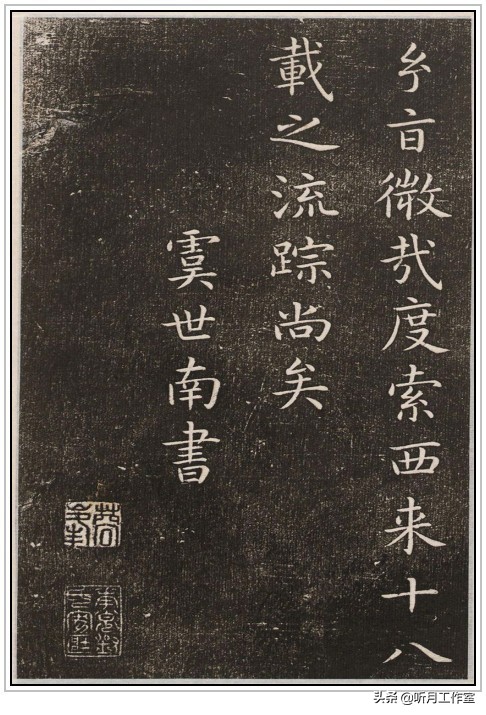 㫖微哉度索西来十八
載之流踪尚矣
虞世南書
头条 @听月工作室